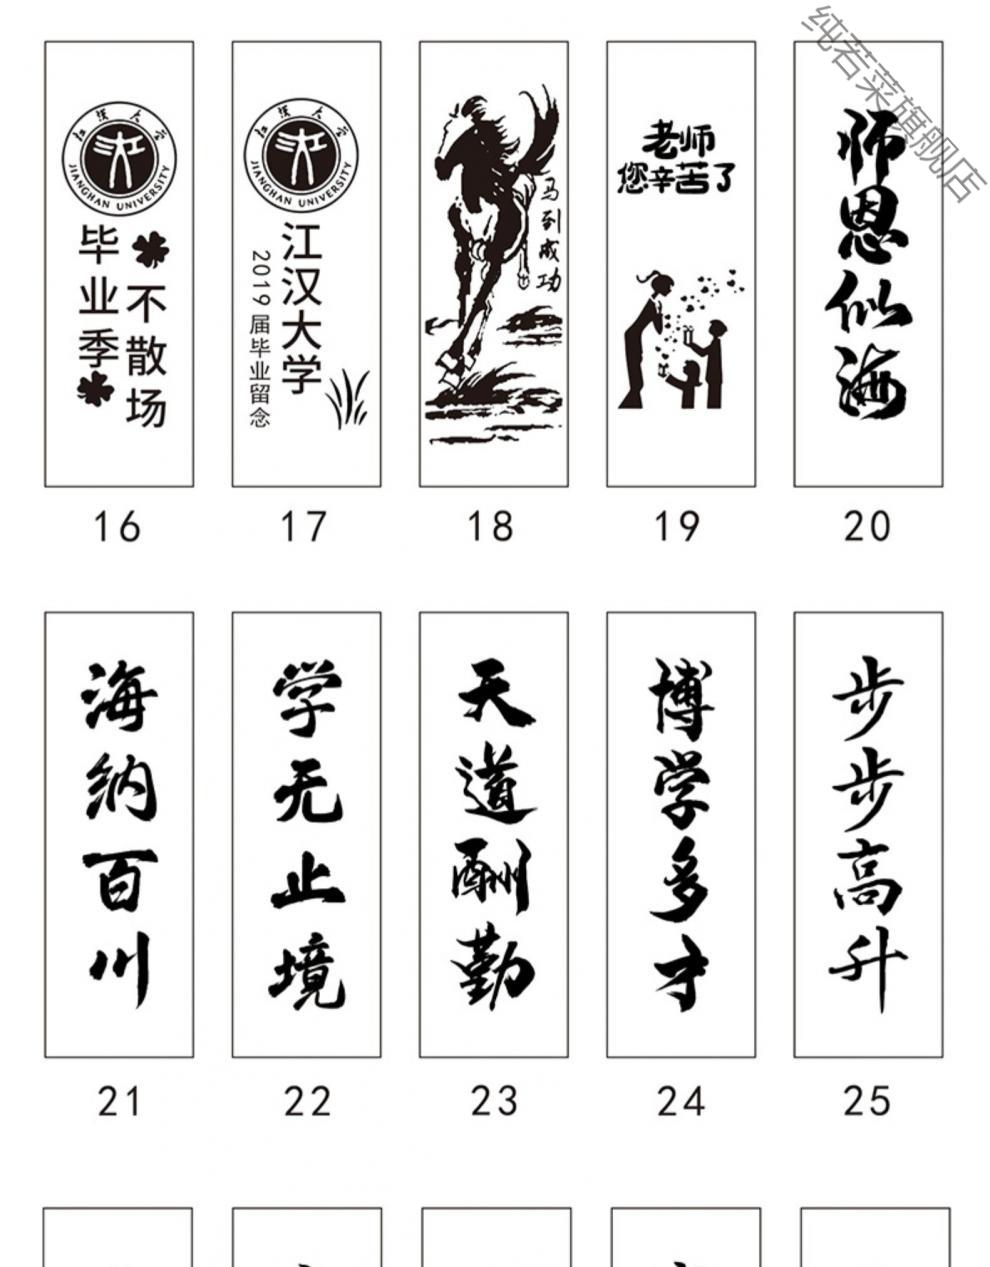 纯若菜旗舰店
江汉大学
JIANGHAN UNIVERSITY
毕业季
不散场
16
江汉大学
JIANGHAN UNIVERSITY
江汉大学
2019届毕业留念
17
马到成功
18
老师
您辛苦了
19
师恩似海
20
海纳百川
21
学无止境
22
天道酬勤
23
博学多才
24
步步高升
25